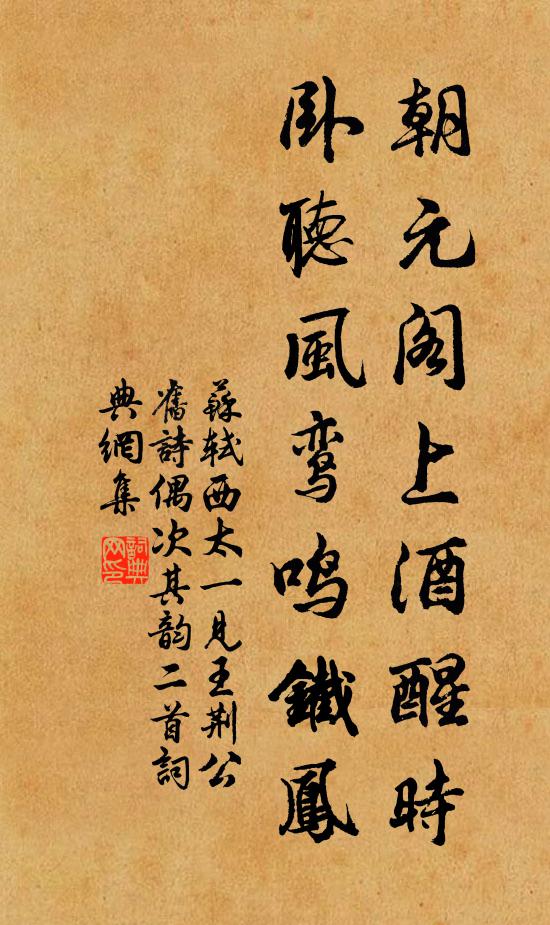 朝元阁上酒醒時
卧聽風鸾鳴鐵鳳
蘇軾西太一見王荆公
舊詩偶次其韵二首詞
典網集
詞典
网印